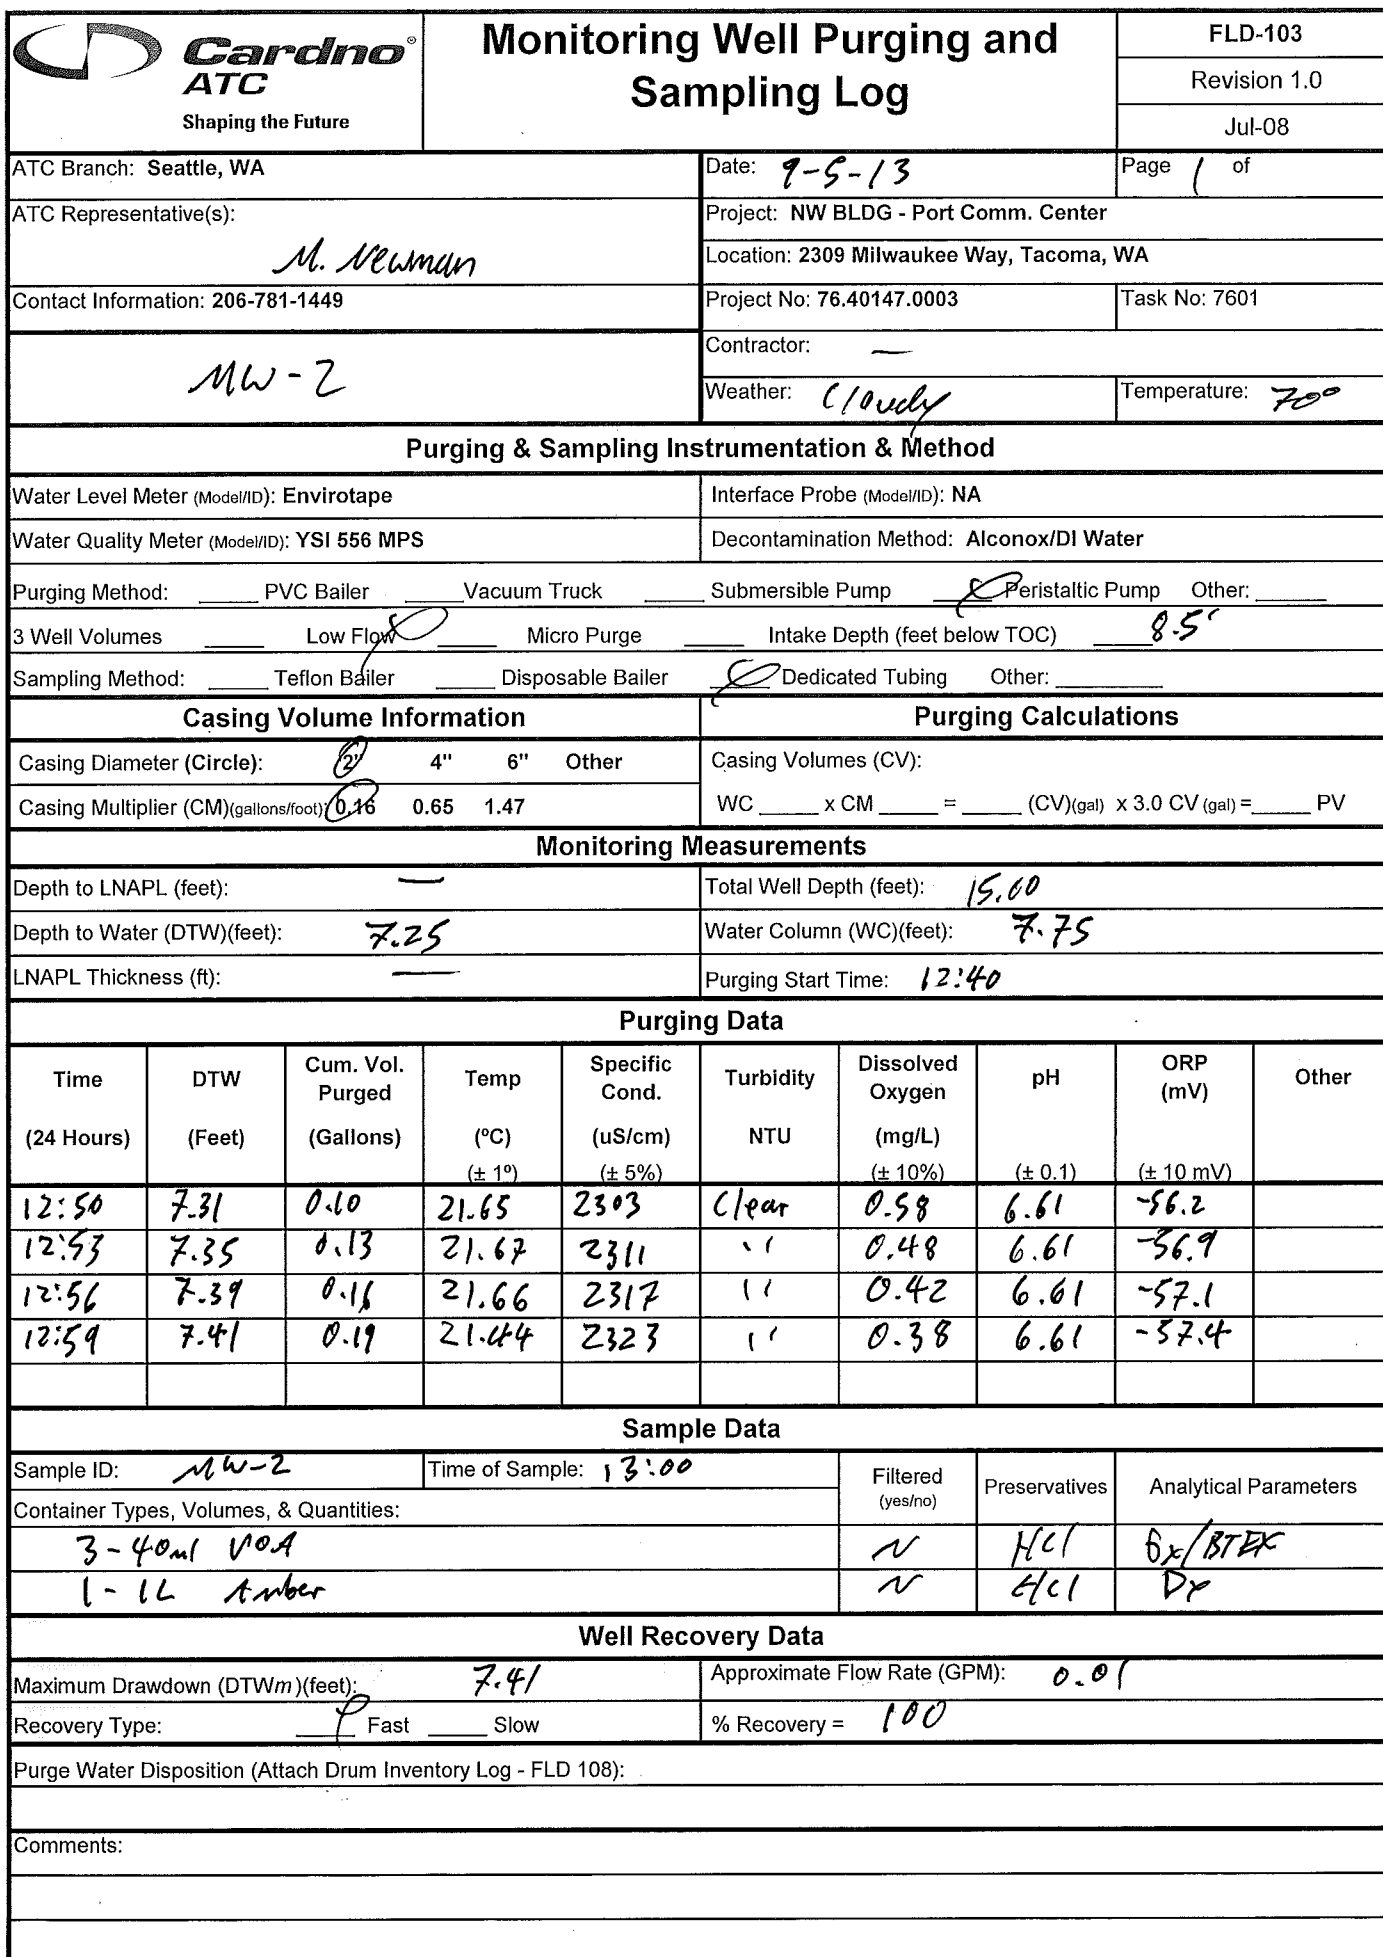 Cardno®
ATC
Shaping the Future
Monitoring Well Purging and
Sampling Log
FLD-103
Revision 1.0
Jul-08
ATC Branch: Seattle, WA
Date: 9-5-13
Page 1 of
ATC Representative(s):
M. Newman
Project: NW BLDG - Port Comm. Center
Location: 2309 Milwaukee Way, Tacoma, WA
Contact Information: 206-781-1449
Project No: 76.40147.0003
Task No: 7601
MW-2
Contractor: —
Weather: Cloudy
Temperature: 70°
Purging & Sampling Instrumentation & Method
Water Level Meter (Model/ID): Envirotape
Interface Probe (Model/ID): NA
Water Quality Meter (Model/ID): YSI 556 MPS
Decontamination Method: Alconox/DI Water
Purging Method: ____ PVC Bailer ____ Vacuum Truck ____ Submersible Pump ____ Peristaltic Pump Other: ____
3 Well Volumes ____ Low Flow ____ Micro Purge ____ Intake Depth (feet below TOC) ____ 8.5'
Sampling Method: ____ Teflon Bailer ____ Disposable Bailer ____ Dedicated Tubing Other: ____
Casing Volume Information
Purging Calculations
Casing Diameter (Circle): 2" 4" 6" Other
Casing Volumes (CV):
Casing Multiplier (CM)(gallons/foot): 0.16 0.65 1.47
WC ____ x CM ____ = ____ (CV)(gal) x 3.0 CV (gal) = ____ PV
Monitoring Measurements
Depth to LNAPL (feet): —
Total Well Depth (feet): 15.00
Depth to Water (DTW)(feet): 7.25
Water Column (WC)(feet): 7.75
LNAPL Thickness (ft): —
Purging Start Time: 12:40
Purging Data
Time (24 Hours) DTW (Feet) Cum. Vol. Purged (Gallons) Temp (ºC) (± 1º) Specific Cond. (uS/cm) (± 5%) Turbidity NTU Dissolved Oxygen (mg/L) (± 10%) pH (± 0.1) ORP (mV) (± 10 mV) Other
12:50 7.31 0.10 21.65 2303 Clear 0.58 6.61 -56.2
12:53 7.35 0.13 21.67 2311 '' 0.48 6.61 -56.9
12:56 7.39 0.16 21.66 2317 '' 0.42 6.61 -57.1
12:59 7.41 0.19 21.44 2323 '' 0.38 6.61 -57.4
Sample Data
Sample ID: MW-2
Time of Sample: 13:00
Filtered (yes/no)
Preservatives
Analytical Parameters
Container Types, Volumes, & Quantities:
3-40ml VOA N HCl Gx/BTEX
1-1L Amber N HCl Dx
Well Recovery Data
Maximum Drawdown (DTWm)(feet): 7.41
Approximate Flow Rate (GPM): 0.01
Recovery Type: ____ Fast ____ Slow
% Recovery = 100
Purge Water Disposition (Attach Drum Inventory Log - FLD 108):
Comments: